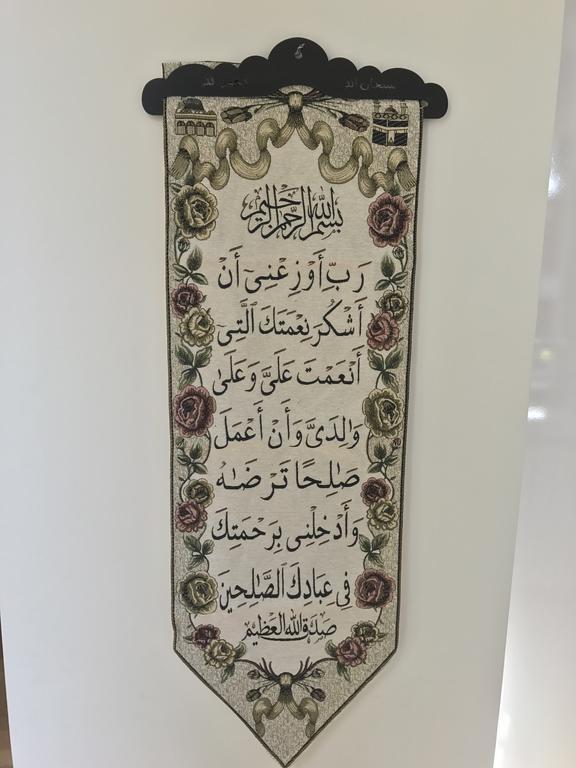 سبحان الله
بسم الله الرحمن الرحيم
رَبِّ أَوْزِعْنِىٓ أَنْ
أَشْكُرَ نِعْمَتَكَ ٱلَّتِىٓ
أَنْعَمْتَ عَلَىَّ وَعَلَىٰ
وَٰلِدَىَّ وَأَنْ أَعْمَلَ
صَٰلِحًا تَرْضَىٰهُ
وَأَدْخِلْنِى بِرَحْمَتِكَ
فِى عِبَادِكَ ٱلصَّٰلِحِينَ
صدق الله العظيم